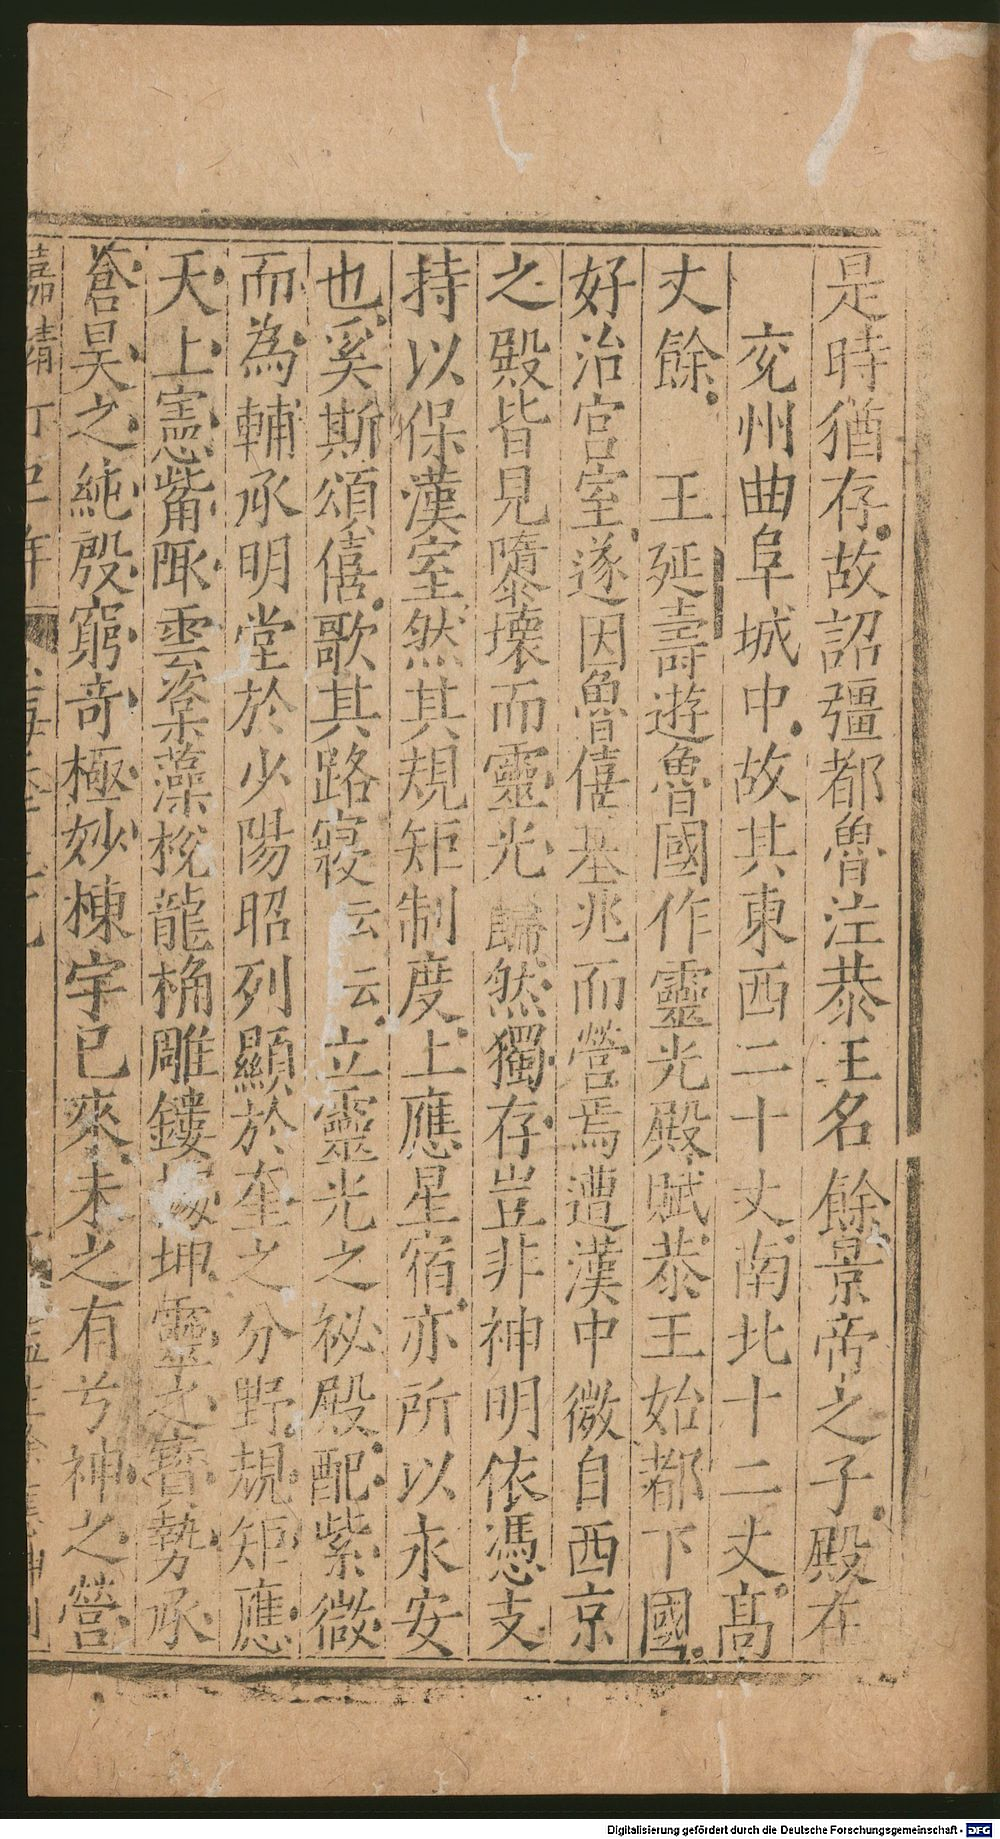 是時猶存故詔彊都魯注恭王名餘景帝之子殿在
兖州曲阜城中故其東西二十丈南北十二丈高
丈餘　王延壽遊魯國作靈光殿賦恭王始都下國
好治宮室遂因魯僖基兆而營焉遭漢中微自西京
之殿皆見隳壞而靈光巋然獨存豈非神明依憑支
持以保漢室然其規矩制度上應星宿亦所以永安
也奚斯頌僖歌其路寢云云立靈光之祕殿配紫微
而為輔承明堂於少陽昭列顯於奎之分野規矩應
天上憲觜陬雲楶藻梲龍桷雕鏤據坤靈之寶勢承
蒼昊之純殷窮奇極妙棟宇已來未之有兮神之營
嘉靖丁巳年
Digitalisierung gefördert durch die Deutsche Forschungsgemeinschaft - DFG